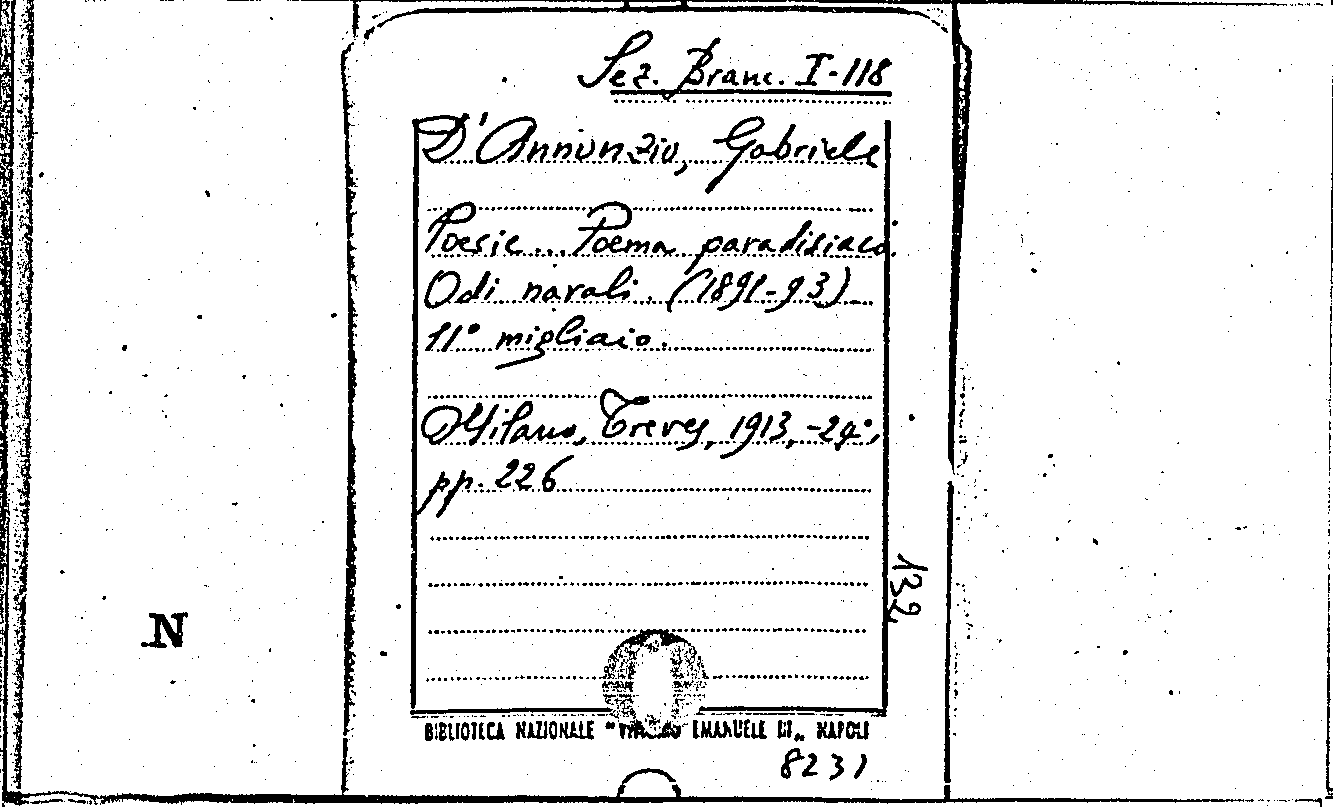 Sez. Branc. I-118
D'Annunzio, Gabriele
Poesie... Poema paradisiaco.
Odi navali. (1891-93)
11° migliaio.
Milano, Treves, 1913, -24°,
pp. 226
132
N
BIBLIOTECA NAZIONALE "VITTORIO EMANUELE III„ NAPOLI
8231